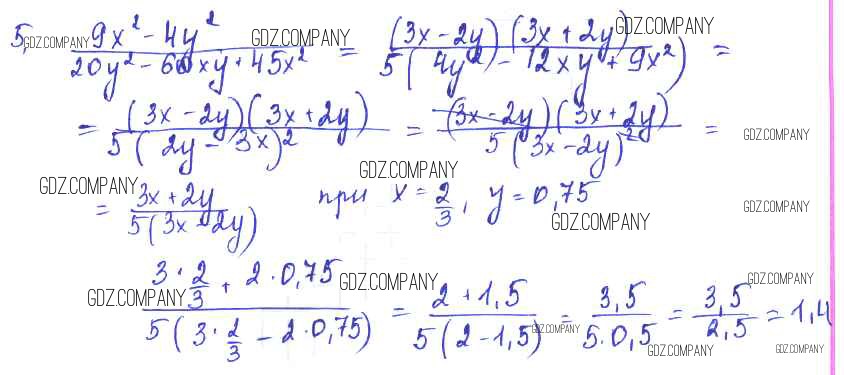 5. (9x² - 4y²)/(20y² - 60xy + 45x²) = ((3x - 2y)(3x + 2y))/(5(4y² - 12xy + 9x²)) =
= ((3x - 2y)(3x + 2y))/(5(2y - 3x)²) = ((3x - 2y)(3x + 2y))/(5(3x - 2y)²) =
= (3x + 2y)/(5(3x - 2y)) при x = 2/3, y = 0,75
(3 · 2/3 + 2 · 0,75)/(5(3 · 2/3 - 2 · 0,75)) = (2 + 1,5)/(5(2 - 1,5)) = 3,5/(5 · 0,5) = 3,5/2,5 = 1,4
GDZ.COMPANY
GDZ.COMPANY
GDZ.COMPANY
GDZ.COMPANY
GDZ.COMPANY
GDZ.COMPANY
GDZ.COMPANY
GDZ.COMPANY
GDZ.COMPANY
GDZ.COMPANY
GDZ.COMPANY
GDZ.COMPANY
GDZ.COMPANY
GDZ.COMPANY